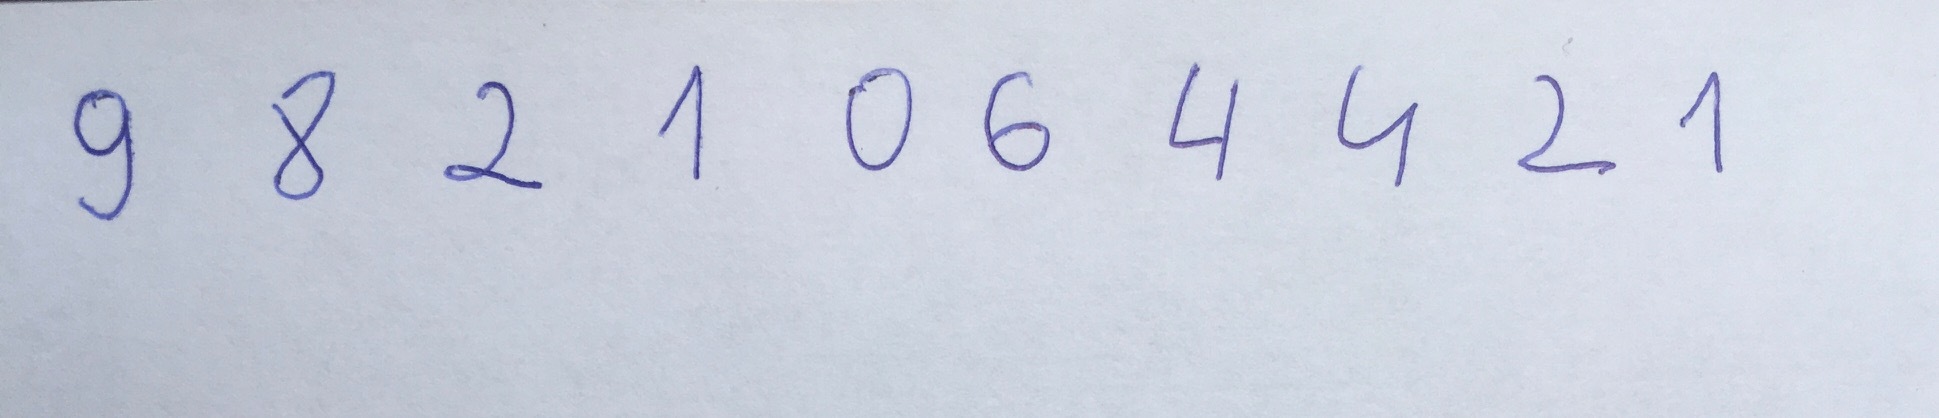 9 8 2 1 0 6 4 4 2 1